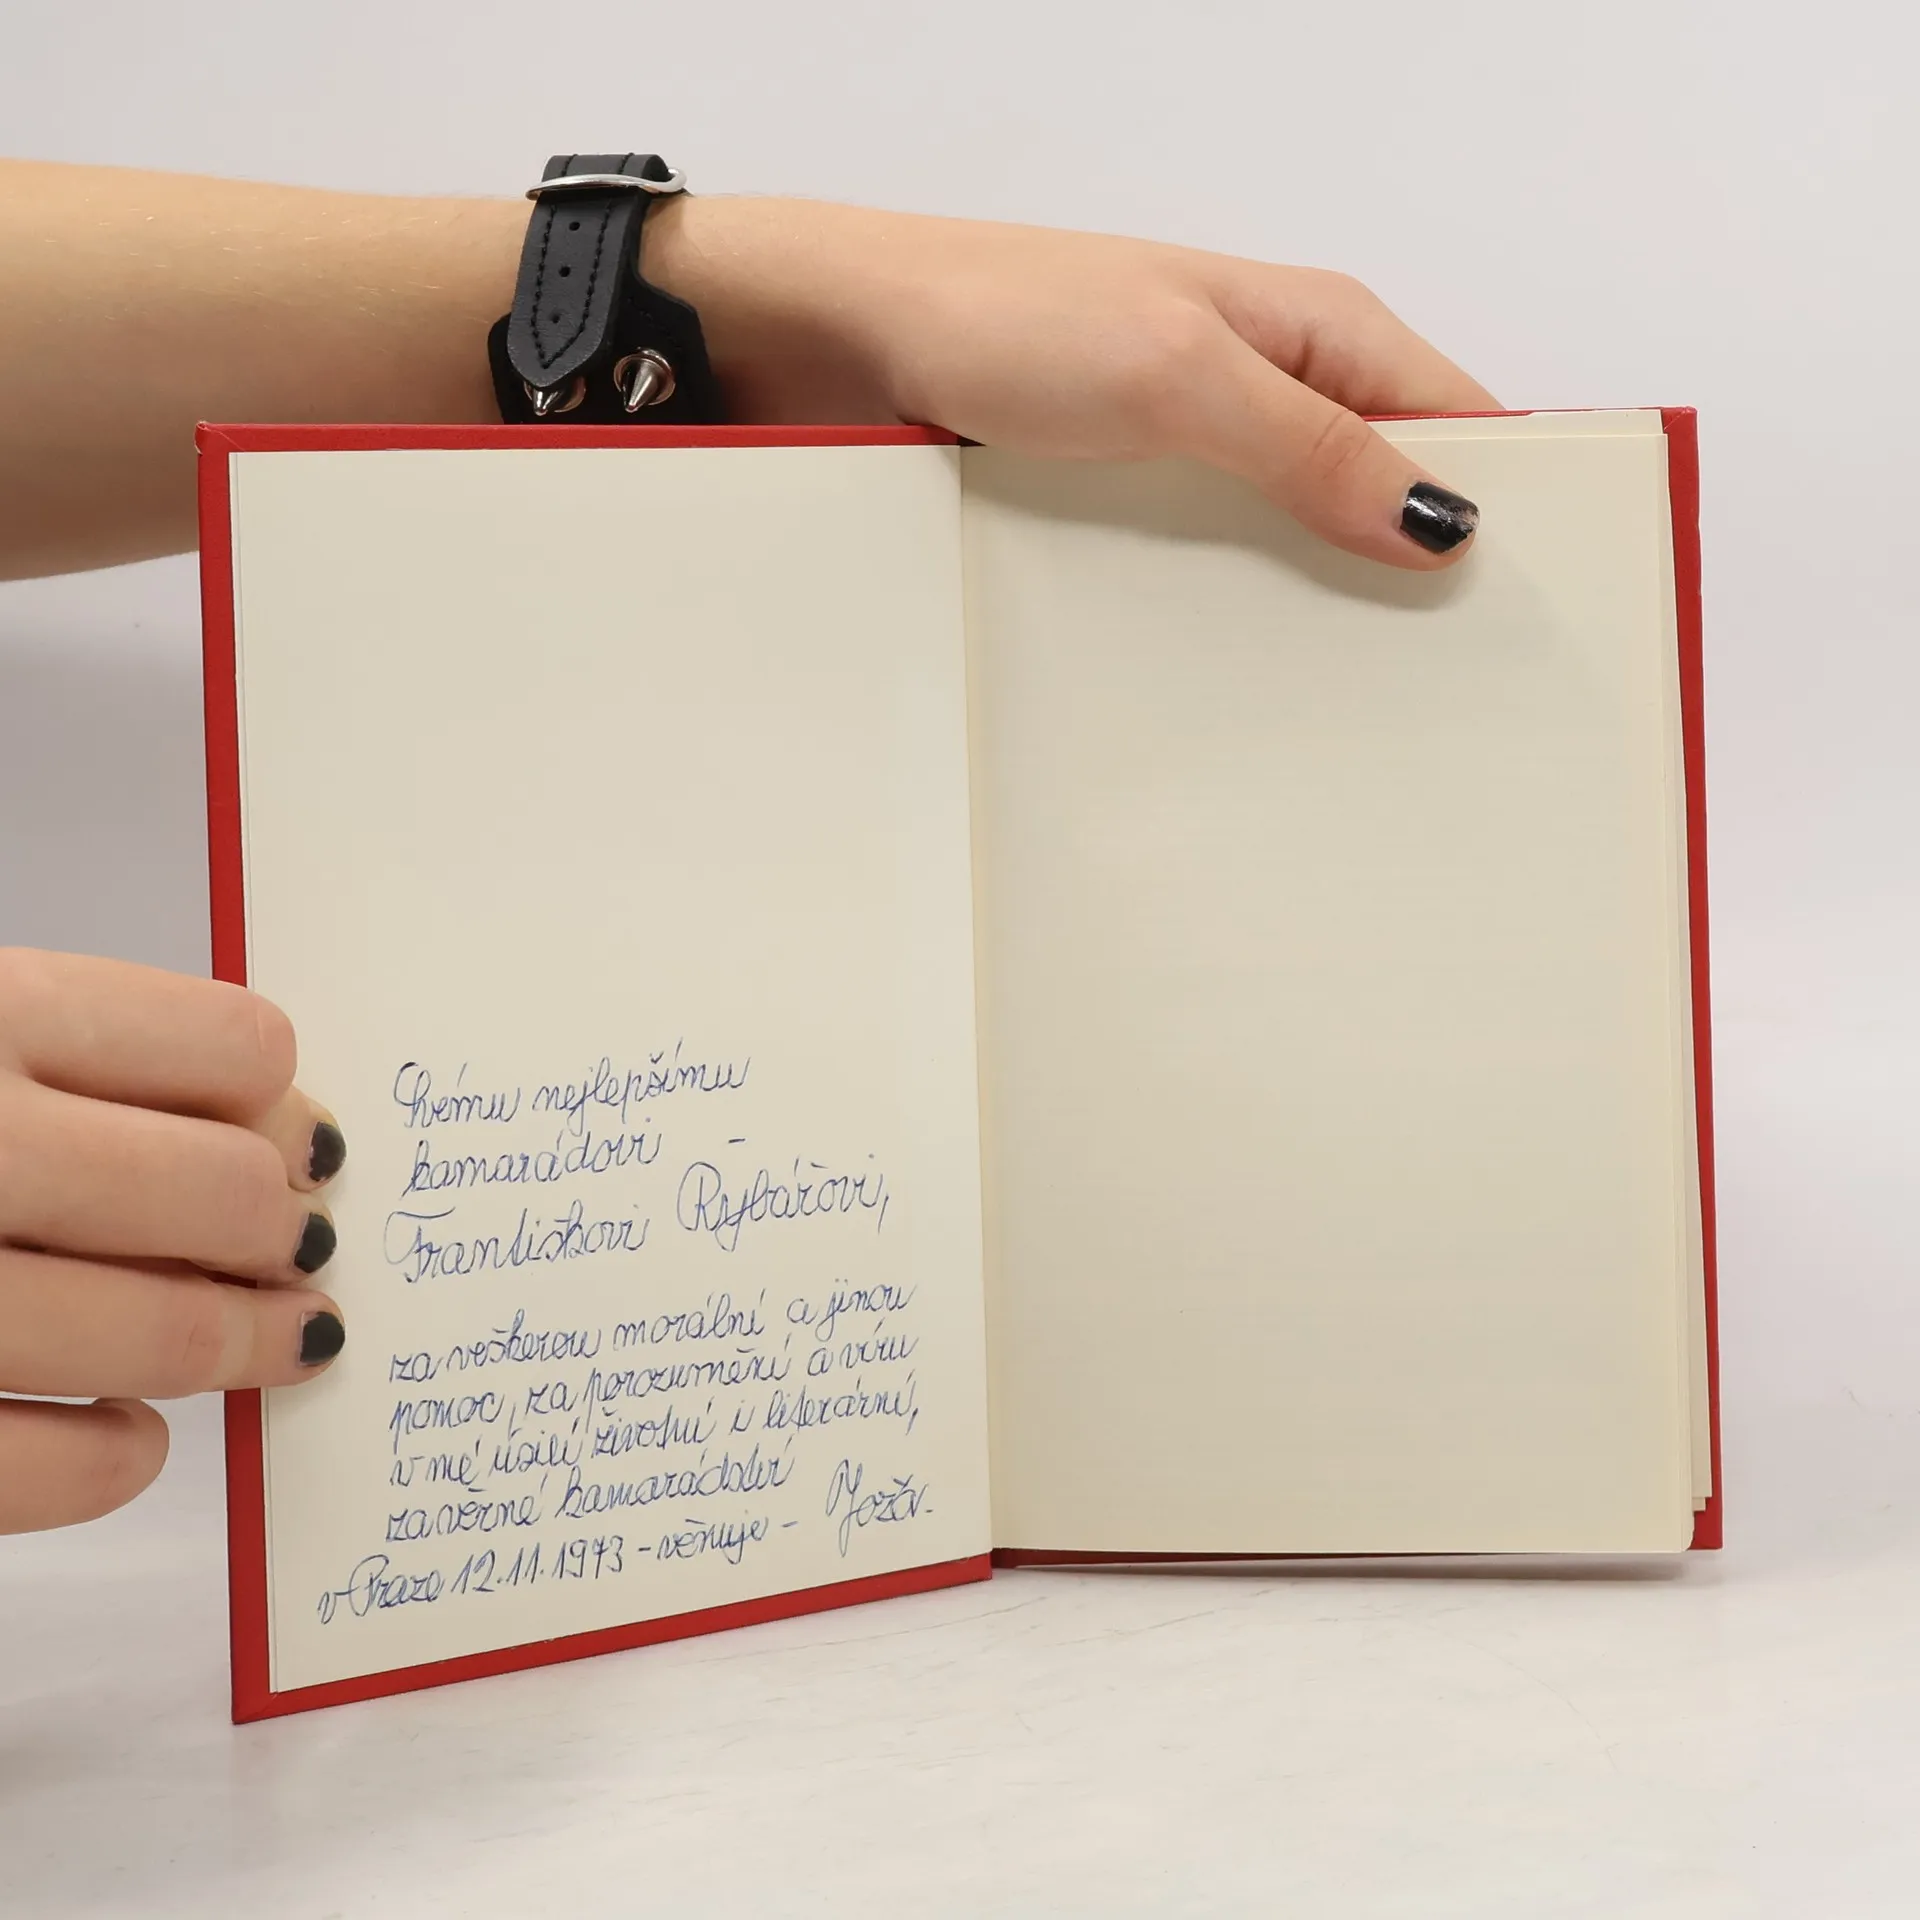 Svému nejlepšímu
kamarádovi –
Františkovi Rybářovi,
za veškerou morální a jinou
pomoc, za porozumění a víru
v mé úsilí životní i literární,
za věrné kamarádství
v Praze 12.11.1973 – věnuje – Joža.